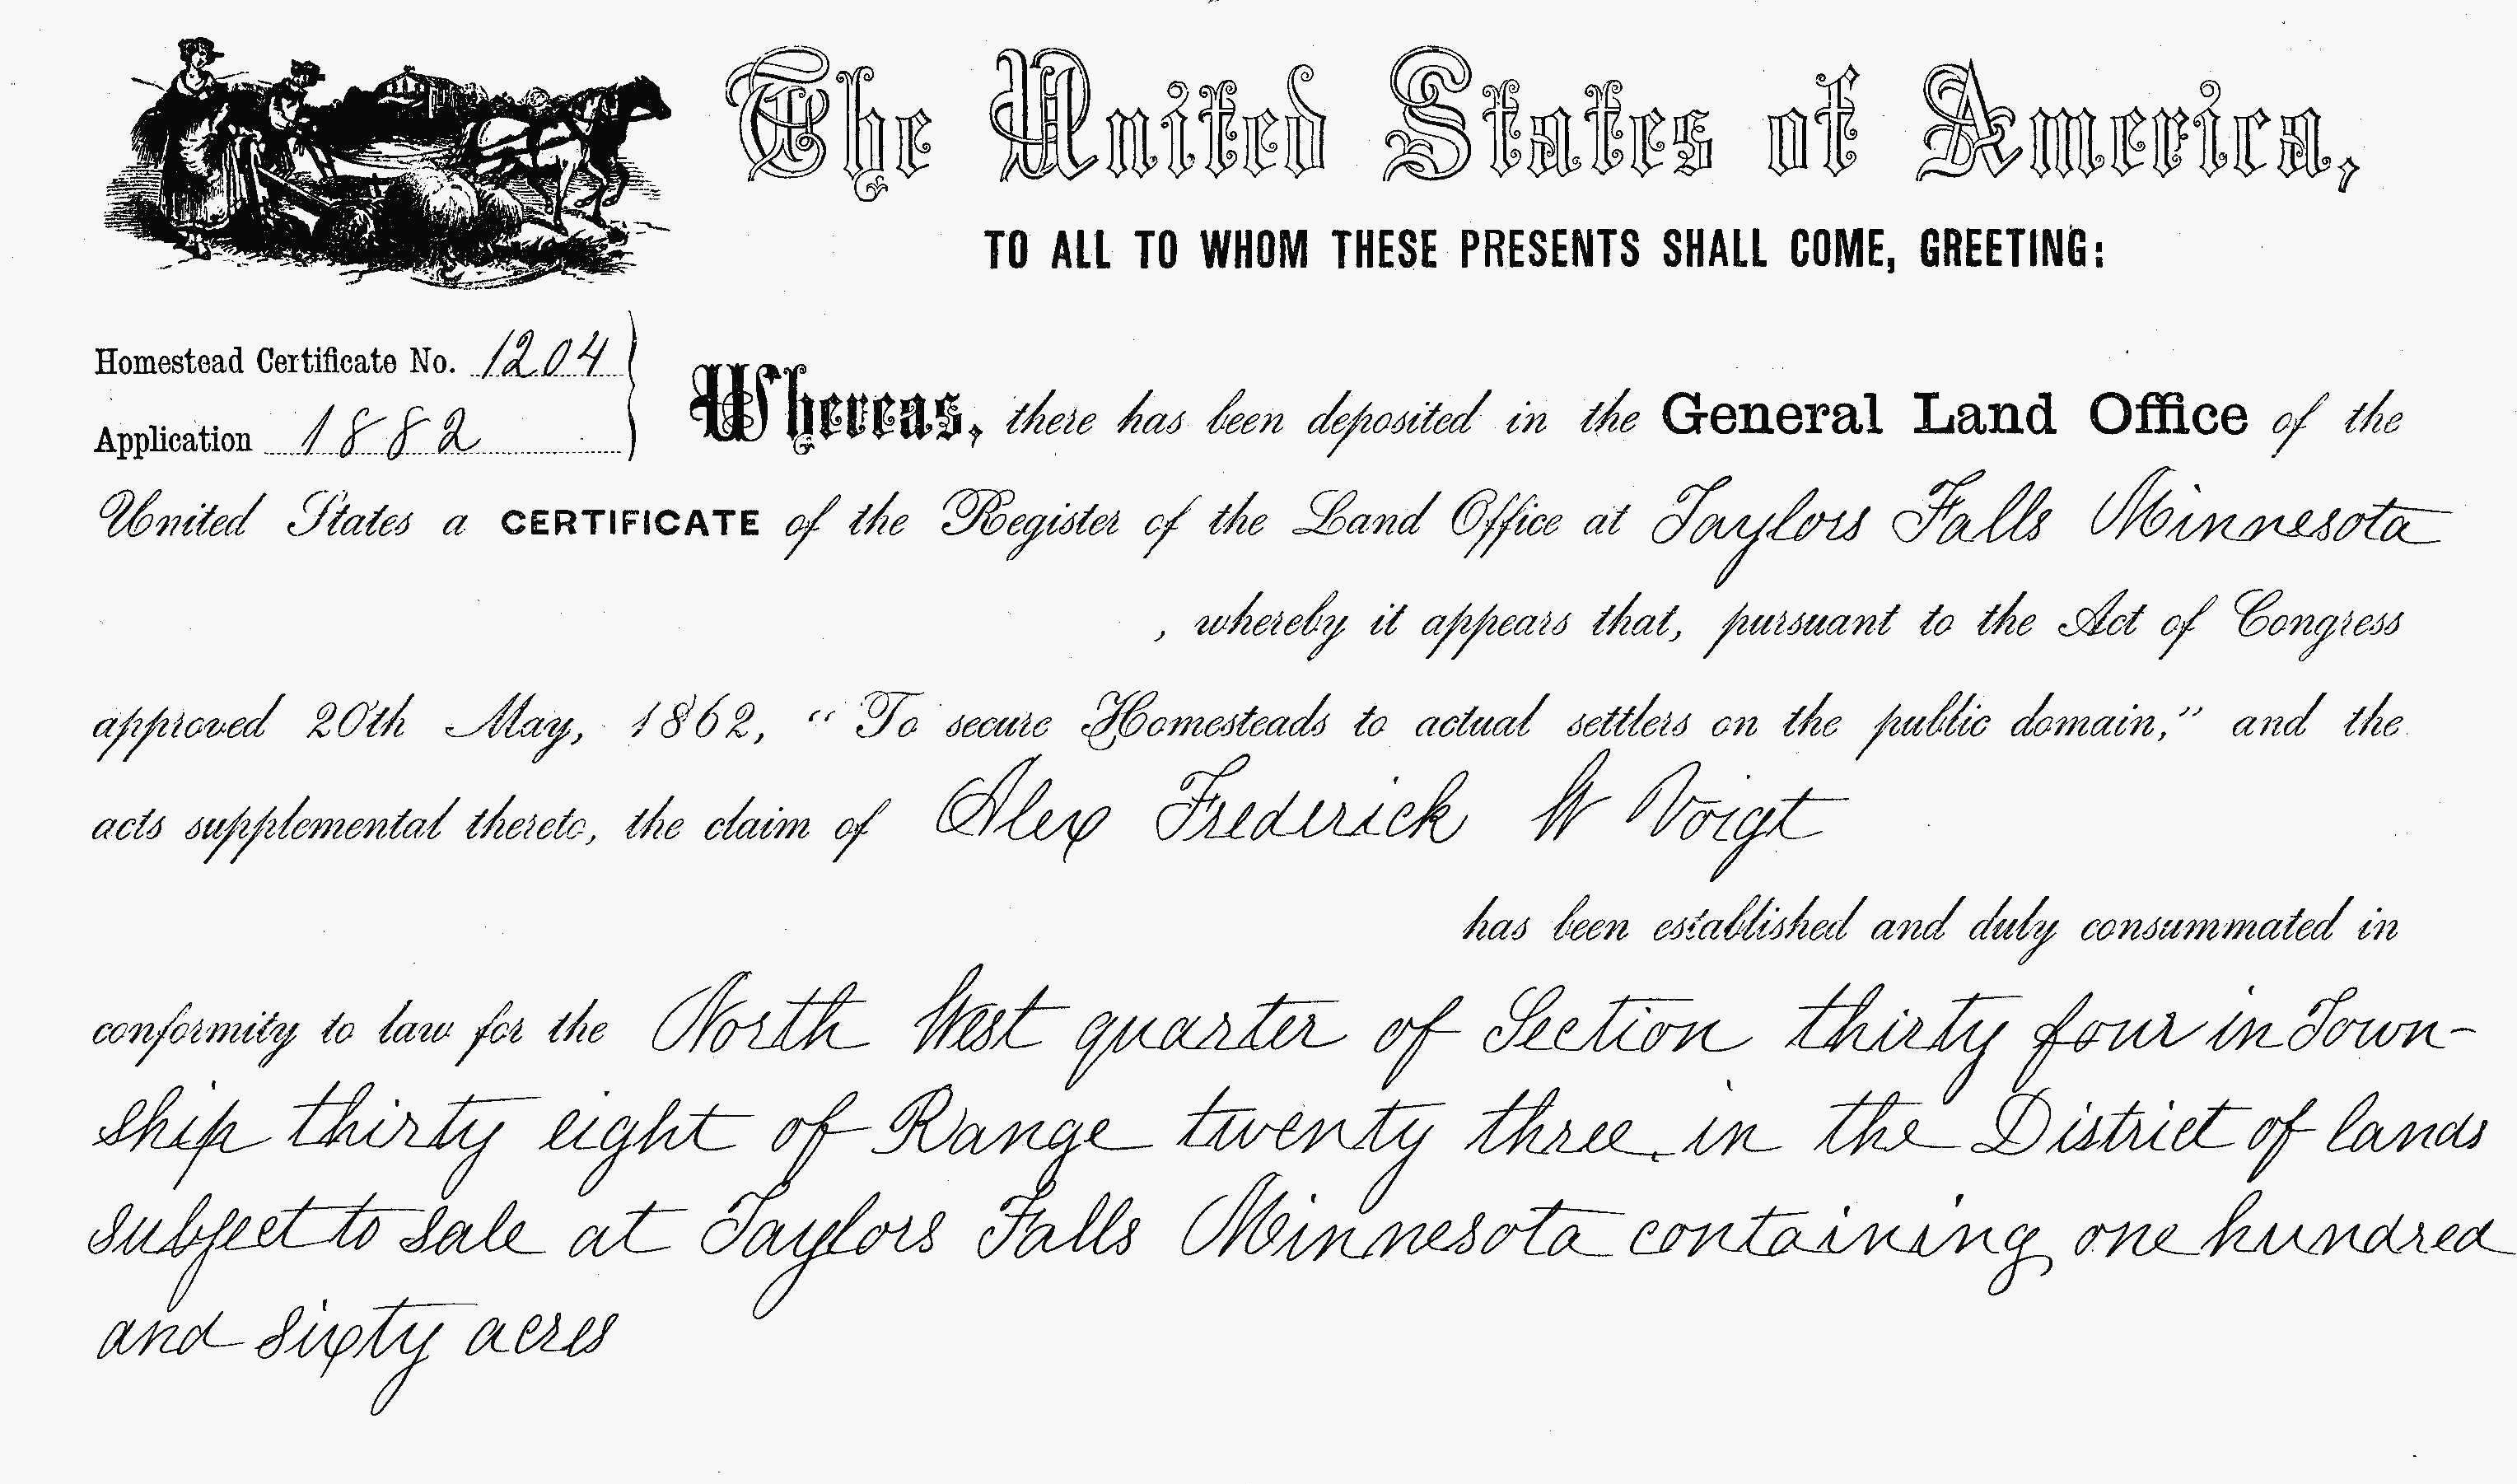 The United States of America,
TO ALL TO WHOM THESE PRESENTS SHALL COME, GREETING:
Homestead Certificate No. 1204
Application 1882
Whereas, there has been deposited in the General Land Office of the
United States a CERTIFICATE of the Register of the Land Office at Taylors Falls Minnesota
, whereby it appears that, pursuant to the Act of Congress
approved 20th May, 1862, "To secure Homesteads to actual settlers on the public domain," and the
acts supplemental thereto, the claim of Alex Frederick W Voigt
has been established and duly consummated in
conformity to law for the North West quarter of Section thirty four in Town-
ship thirty eight of Range twenty three, in the District of lands
subject to sale at Taylors Falls Minnesota containing one hundred
and sixty acres